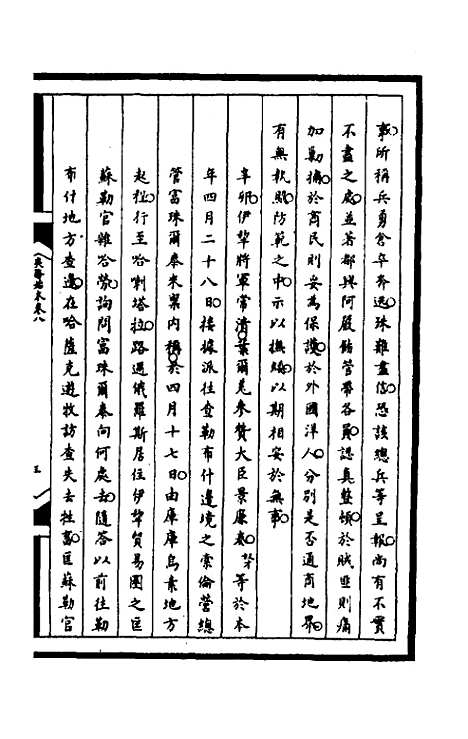 事所稱兵勇舍辛奔逃殊難盡信慿該總兵等呈報尚有不實
不盡之處並著郡興阿嚴飭管帶各員認真整頓於賊匪則痛
加勦捕於商民則妥為保護於外國洋人分別是否通商地界
有無執照防範之中示以撫綏以期相安於無事
辛卯伊犂將軍常清葉爾羌參贊大臣景廉奏等於本
年四月二十八日接據派往查勒布什邊境之索倫營總
管富珠爾泰來稟內稱於四月十七日由庫庫烏素地方
起程行至哈喇塔拉路過俄羅斯居住伊犂貿易圈之匡
蘇勒官雜哈勞詢問富珠爾泰向何處去隨答以前往勒
布什地方查邊在哈薩克遊牧訪查失去牲畜匡蘇勒官
夷務始末卷八
五